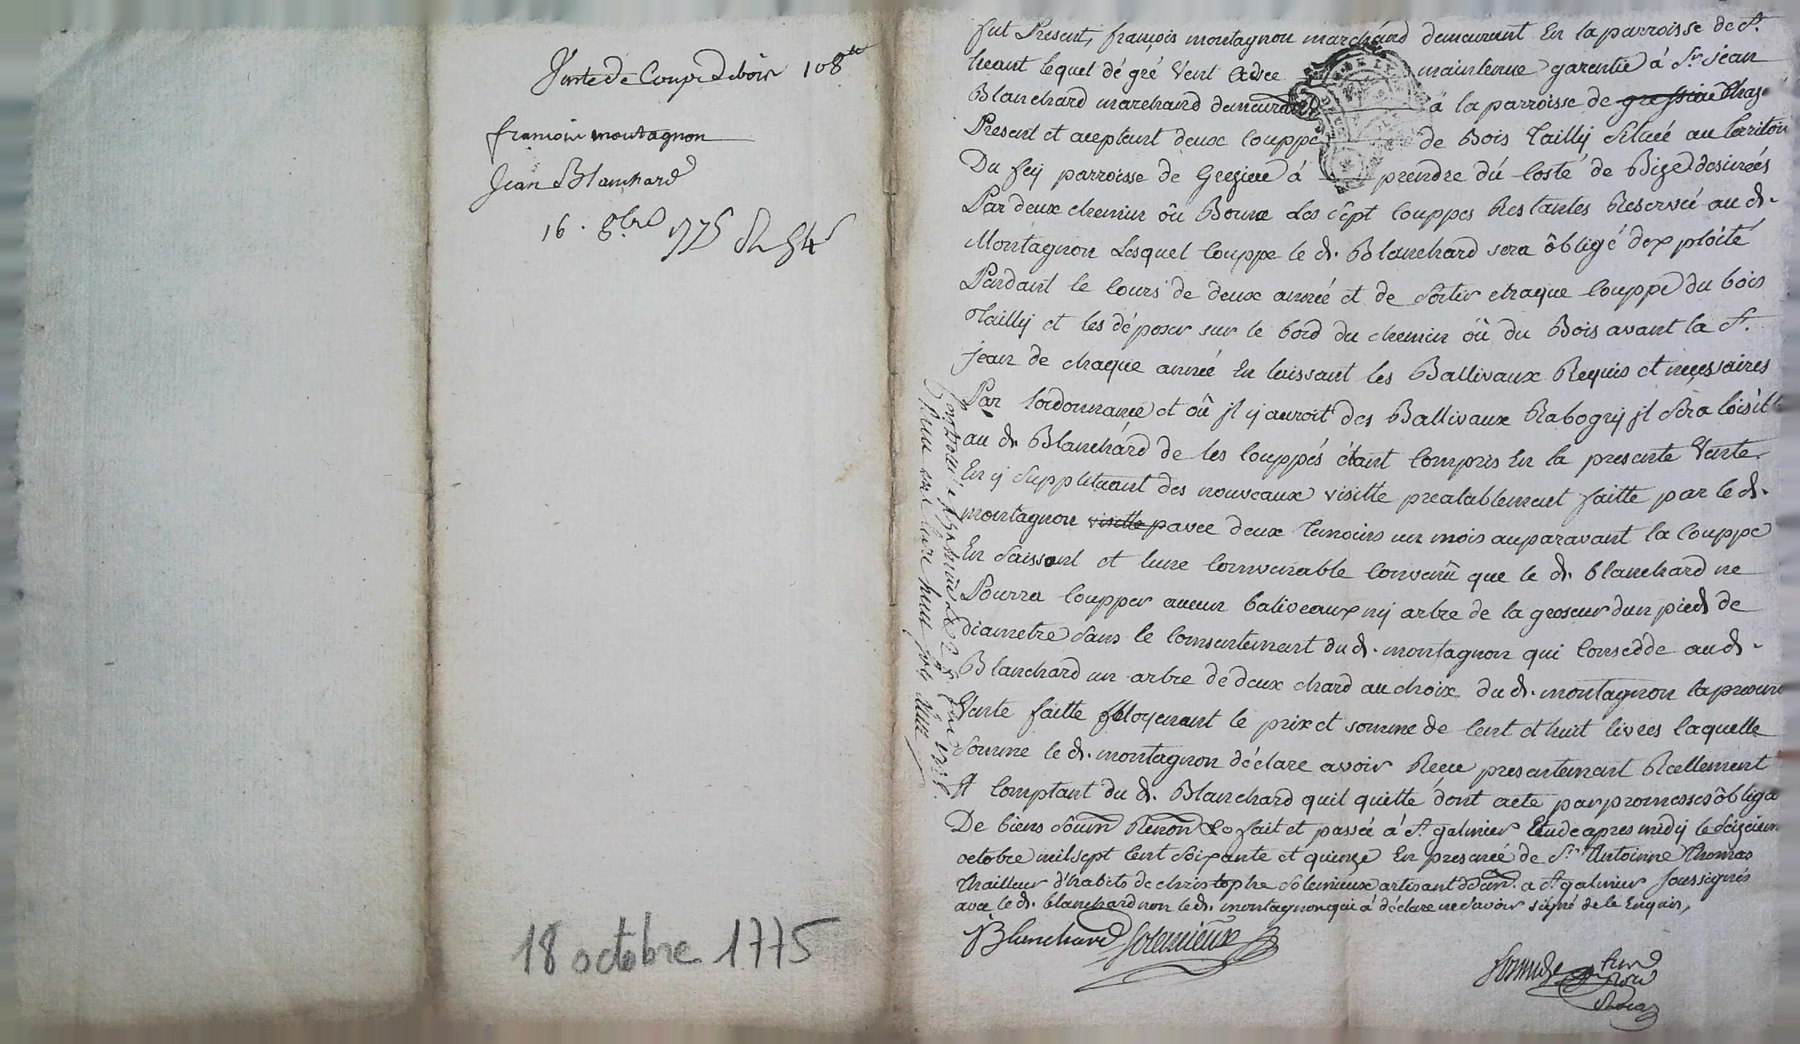 Vente de Coupe de bois 108
françois montagnon
Jean Blanchard
16. 8bre 1775
18 octobre 1775
fut Present, françois montagnon marchand demeurant En la parroisse de St.
heant lequel dé gré Vent avec maintenue garentie á Sr. jean
Blanchard marchand demeurant á la parroisse de
Present et aceptent deux Couppe de Bois Tailly Situé au territoir
Du fey parroisse de Grezieu á prendre dú Costé de Bize desinées
Par deux chemin oû Borne Les Sept Couppes Restantes Reservée au d.
Montagnon Lesquel Couppe le d. Blanchard sera ôbligé dexploité
Pendant le Cours de deux année et de Sortir chaque Couppe du bois
Tailly et les déposer sur le bord du chemin oû du Bois avant la St.
jean de chaque année En laissant les Ballivaux Requis et neçessaires
Par lordonnance et oû jl y auroit des Ballivaux Rabogry jl Sera loisible
au d. Blanchard de les Couppés étant Compris En la presente Vente
En y Supplituant des nouveaux visitte prealablement faitte par le d.
montagnon visitte avec deux temoins un mois auparavant la Couppe
En Saisson et lune Convenable Convenû que le d. blanchard ne
Pourra Coupper aucun baliveaux ny arbre de la groseur dun pied de
diametre Sans le Consentement du d. montagnon qui Consedde au d.
Blanchard un arbre de deux chard au choix du d. montagnon la presente
Vente faitte Moyenant le prix et somme de Cent et huit livres laquelle
Somme le d. montagnon déclare avoir Reçue presentement Réellement
Et Comptant du d. Blanchard quil quitte dont acte par promesses ôbliga
De biens Soum Renon & fait et passée á St. galmier Etude apres midy le Seizieme
octobre mil sept Cent Soixante et quinze En presence de Sr. Antoinne Thomas
thailleur d'habits de christophe Solemieux artisant dem. a St. galmier Soussignés
avec le d. blanchard non le d. montagnon qui á déclaré ne Savoir signé de le Enquis,
JBlanchard Solemieux